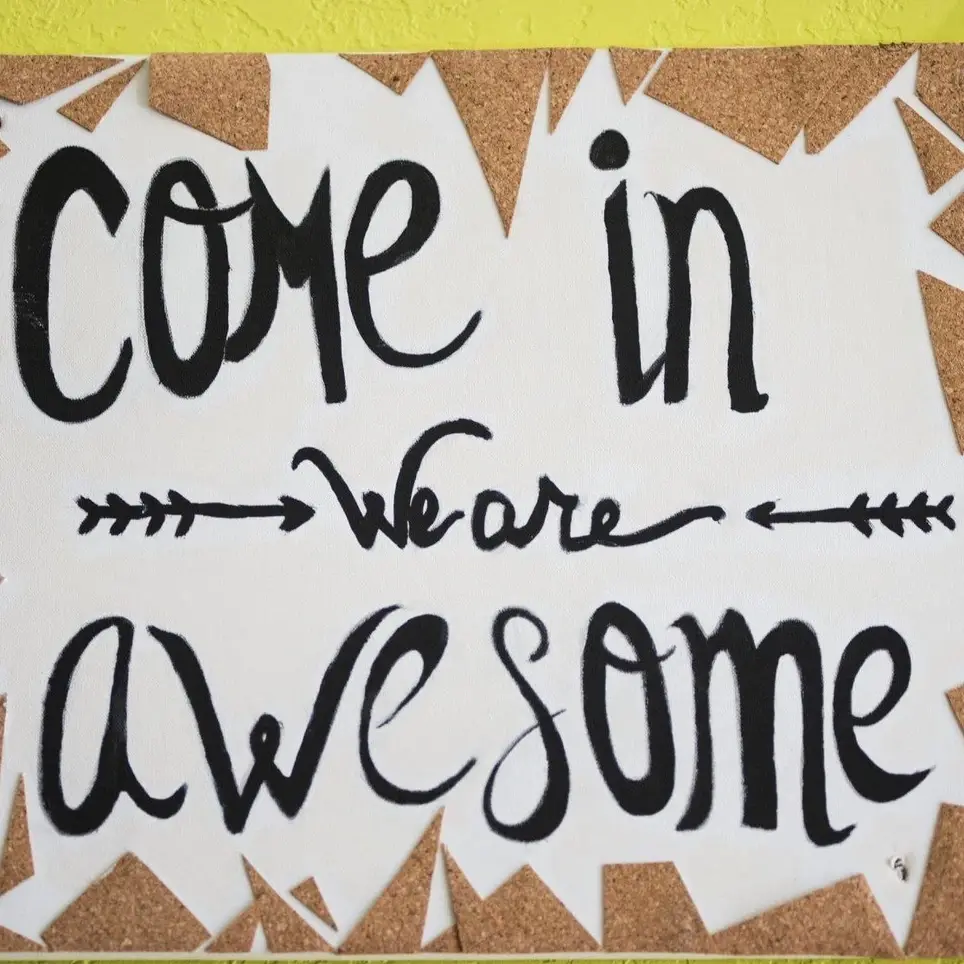 Come in
We are
awesome